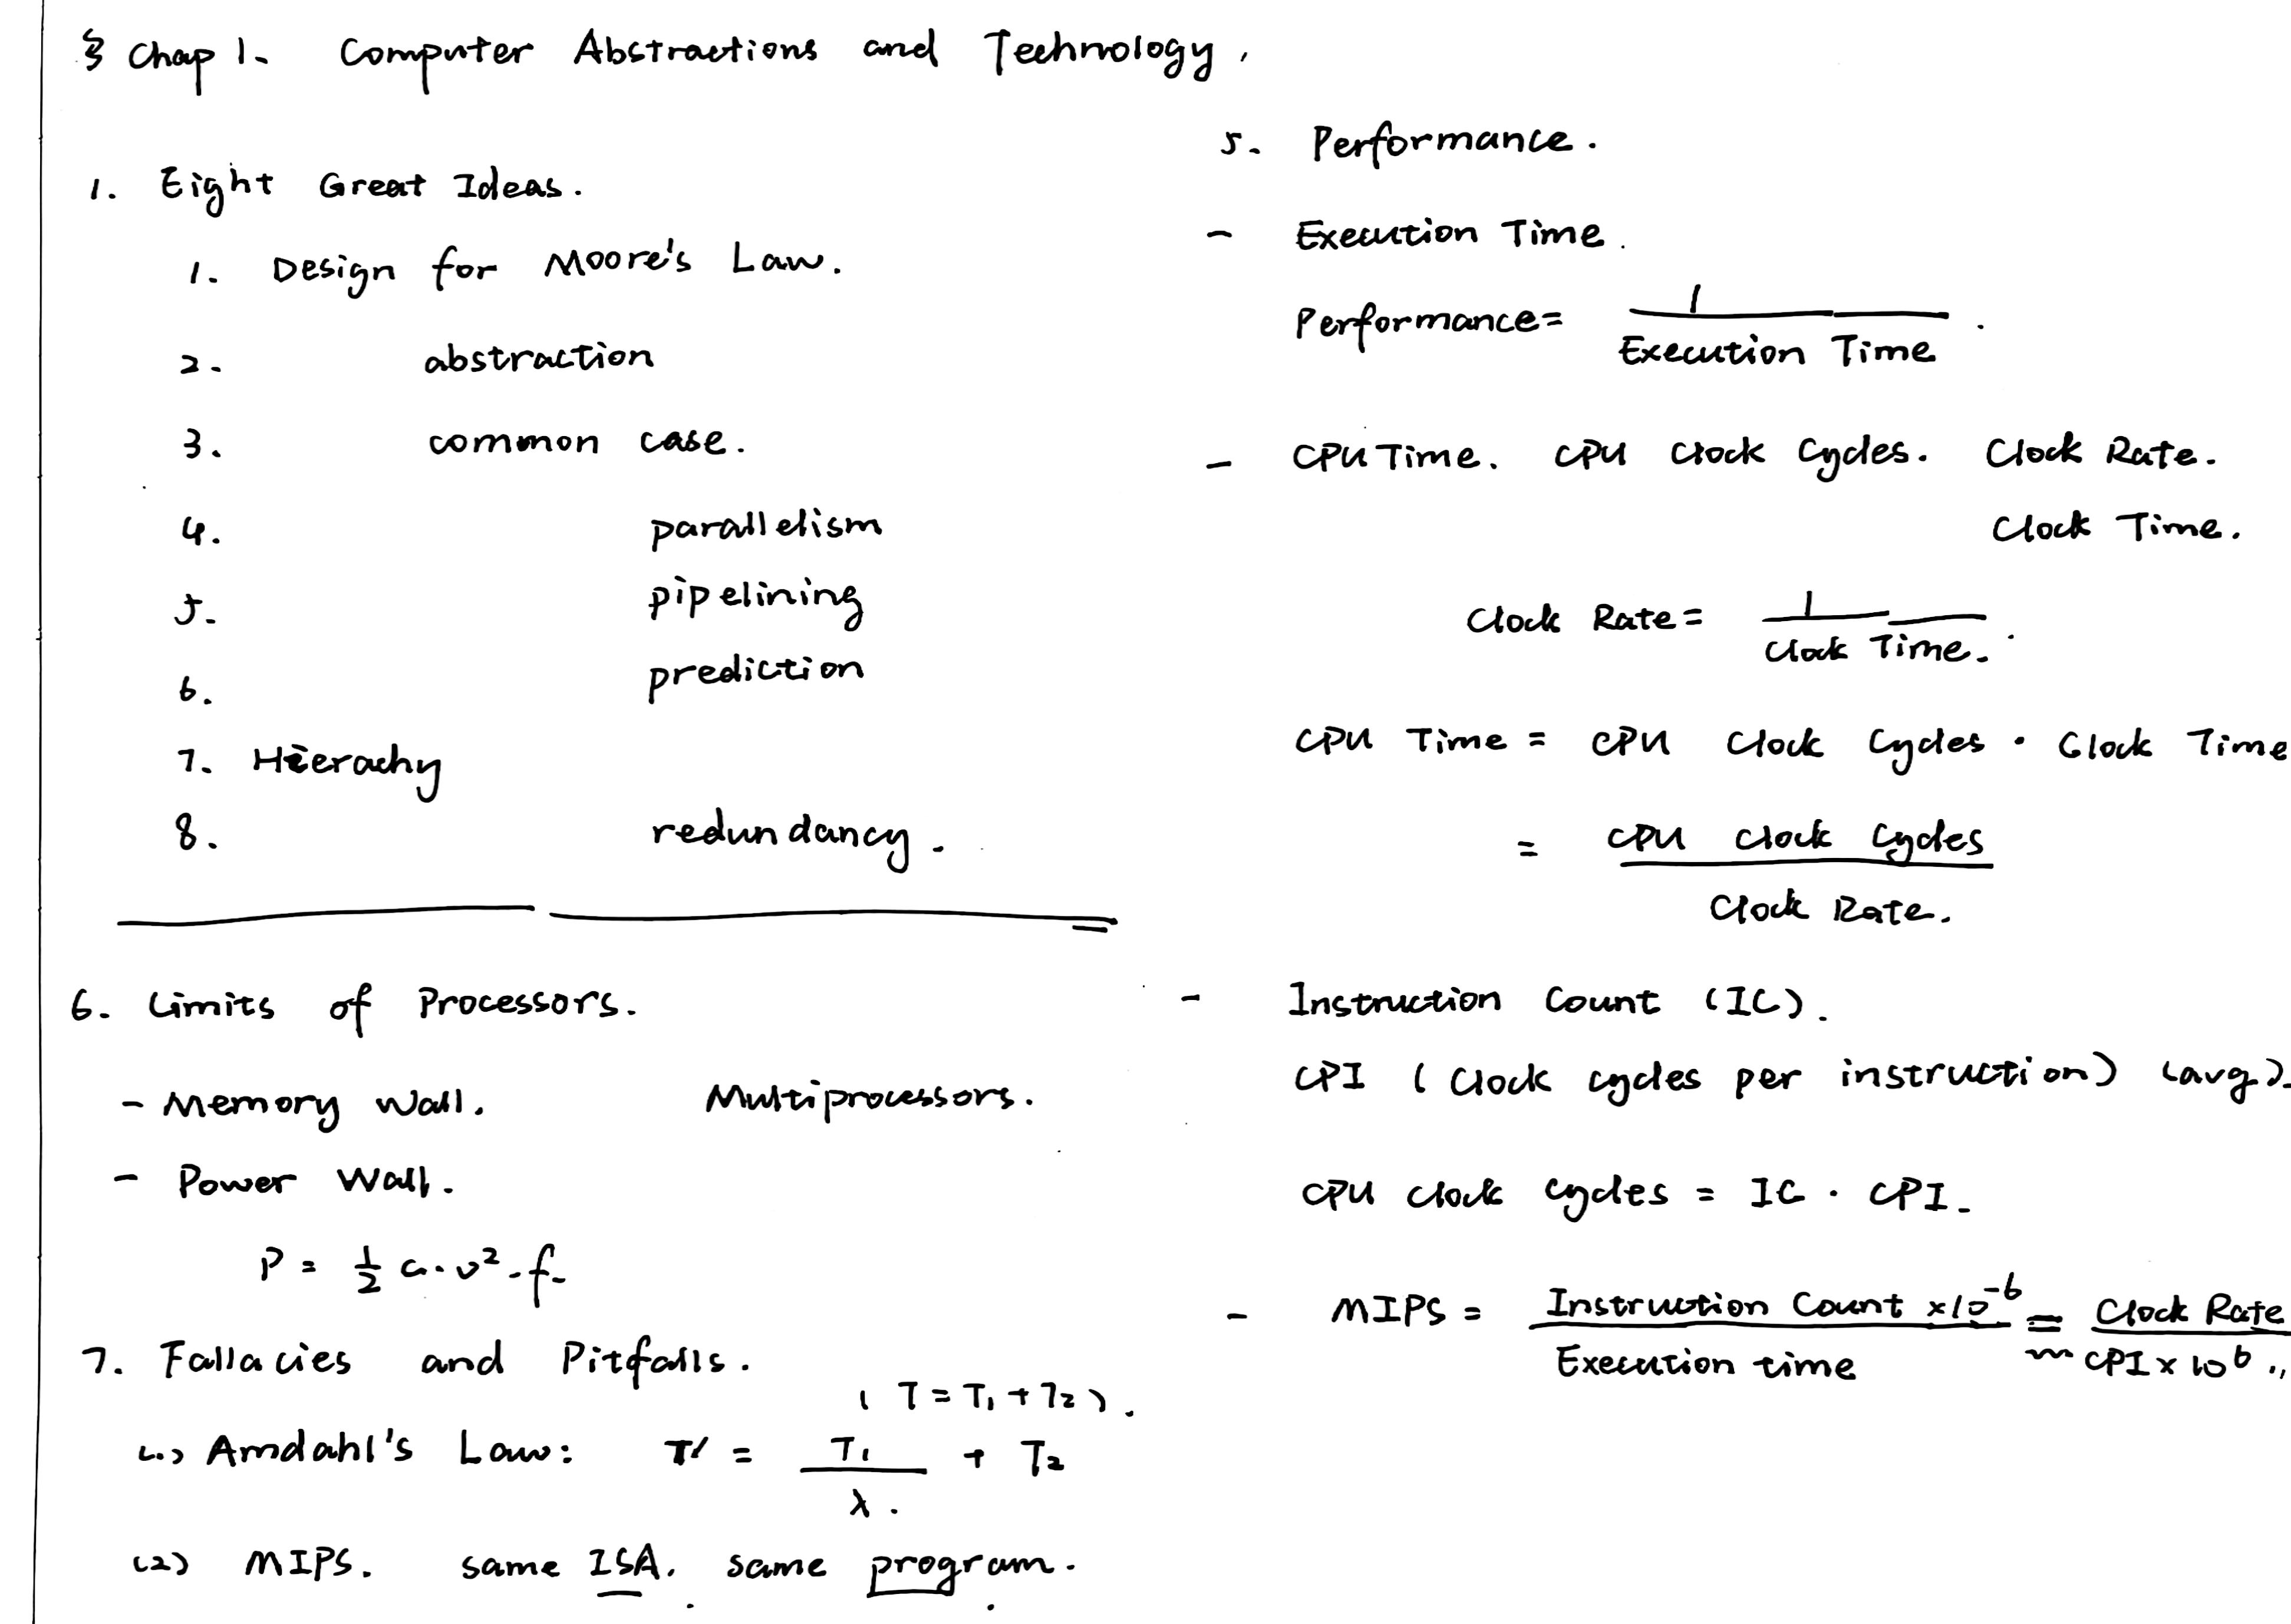 § Chap 1. Computer Abstractions and Technology.
1. Eight Great Ideas.
1. Design for Moore's Law.
2. abstraction
3. common case.
4. parallelism
5. pipelining
6. prediction
7. Hierachy
8. redundancy.
5. Performance.
- Execution Time.
Performance = 1 / Execution Time.
- CPU Time. CPU Clock Cycles. Clock Rate.
Clock Time.
Clock Rate = 1 / Clock Time.
CPU Time = CPU Clock Cycles · Clock Time
= CPU Clock Cycles / Clock Rate.
- Instruction Count (IC).
CPI (Clock cycles per instruction) (avg).
CPU clock cycles = IC · CPI.
- MIPS = Instruction Count ×10⁻⁶ / Execution time = Clock Rate / CPI × 10⁶
6. Limits of Processors.
- Memory Wall. Multiprocessors.
- Power Wall.
P = ½ C·V²·f.
7. Fallacies and Pitfalls.
(T = T₁ + T₂).
(1) Amdahl's Law: T' = T₁ / λ. + T₂
(2) MIPS. same ISA. same program.